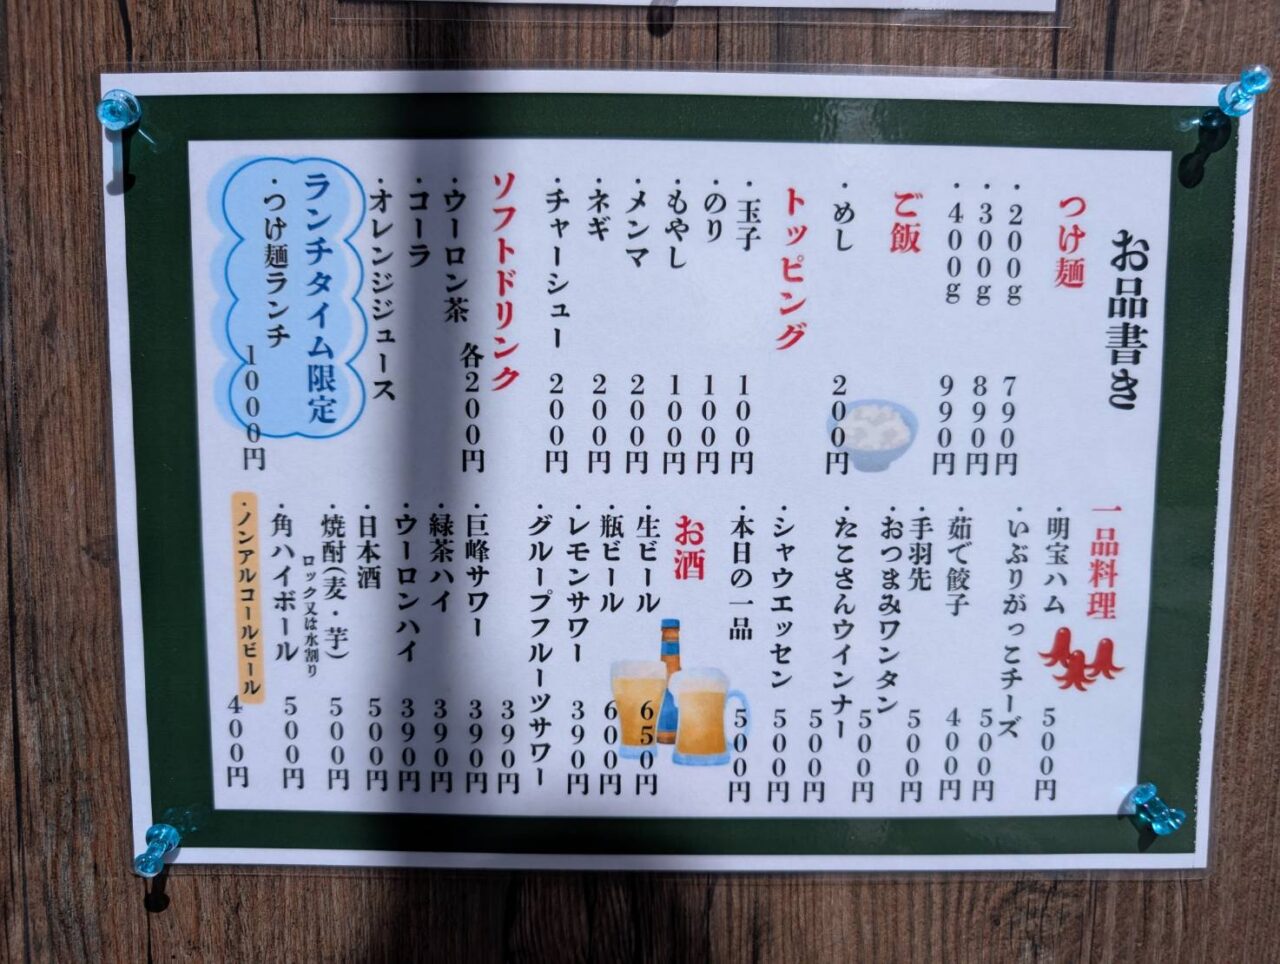 お品書き
つけ麺
・200g 790円
・300g 890円
・400g 990円
ご飯
・めし 200円
トッピング
・玉子 100円
・のり 100円
・もやし 100円
・メンマ 200円
・ネギ 200円
・チャーシュー 200円
ソフトドリンク
各200円
・ウーロン茶
・コーラ
・オレンジジュース
ランチタイム限定
・つけ麺ランチ 1000円
一品料理
・明宝ハム 500円
・いぶりがっこチーズ 500円
・茹で餃子 400円
・手羽先 500円
・おつまみワンタン 500円
・たこさんウインナー 500円
・シャウエッセン 500円
・本日の一品 500円
お酒
・生ビール 650円
・瓶ビール 600円
・レモンサワー 390円
・グループフルーツサワー 390円
・巨峰サワー 390円
・緑茶ハイ 390円
・ウーロンハイ 390円
・日本酒 500円
・焼酎(麦・芋) 500円
ロック又は水割り
・角ハイボール 500円
・ノンアルコールビール 400円